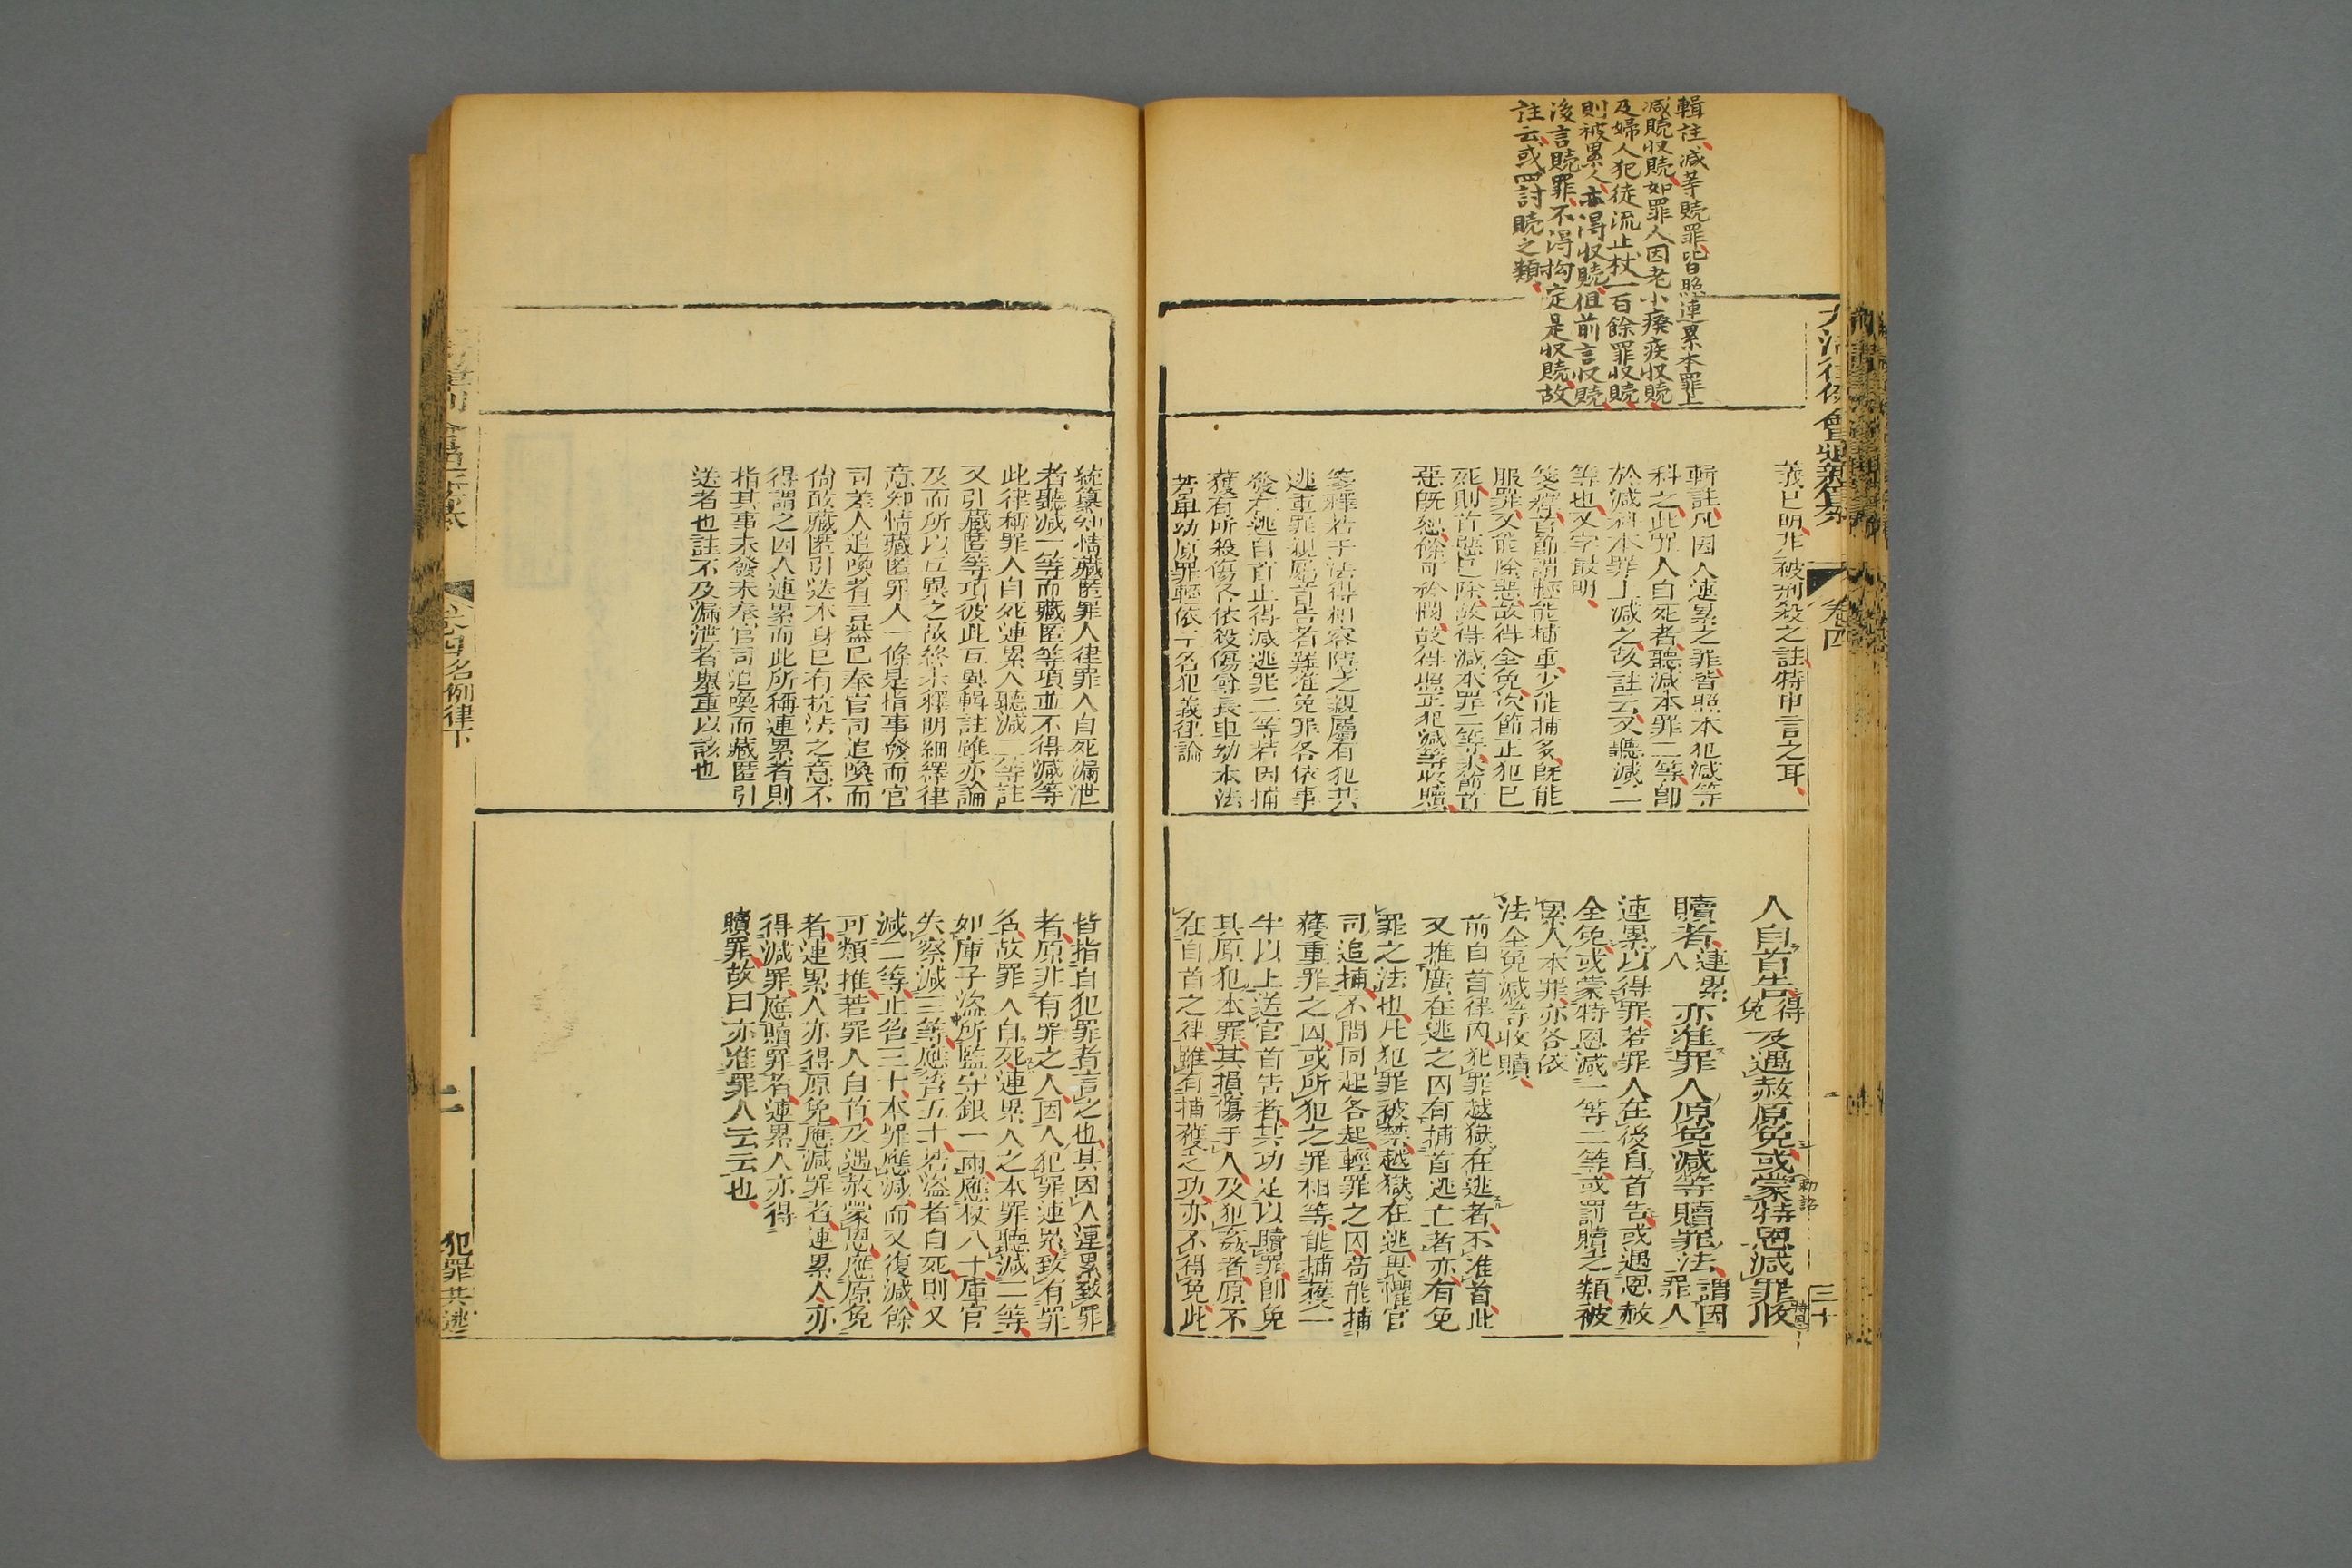 輯註減等贖罪皆照連累本罪上
減贖収贖如罪人因老小癈疾収贖
及婦人犯徒流止杖一百餘罪収贖
則被累人亦得収贖但前言収贖
後言贖罪不得拘定是収贖故
註云或罰贖之類
大清律例會通新纂
卷四
三十
義已明非被刑殺之註特申言之耳
輯註凡因人連累之罪皆照本犯減等
科之此罪人自死者聽減本罪二等卽
於減科本罪上減之故註云又聽減二
等也又字最明
箋釋首節謂輕能捕重少能捕多旣能
服罪又能除惡故得全免次節正犯已
死則首惡已除故得減本罪二等末節首
惡旣經餘可矜憫故得照正犯減等收贖
箋釋若于法得相容隱之親屬有犯共
逃重罪親屬首告者雖准免罪各依事
發在逃自首止得減逃罪二等若因捕
獲有所殺傷各依殺傷尊長卑幼本法
若卑幼原罪輕依干名犯義律論
人自首告得免及遇赦原免或蒙特恩減罪收
贖者連累人亦准罪人原免減等贖罪法謂因罪人
連累以得罪若罪人在後自首告或遇恩赦
全免或蒙特恩減一等二等或罰贖之類被
累人本罪亦各依
法全免減等收贖
前自首律內犯罪越獄在逃者不准首此
又推廣在逃之囚有捕首逃亡者亦有免
罪之法也凡犯罪被禁越獄在逃畏懼官
司追捕不問同起各起輕罪之囚苟能捕
獲重罪之囚或所犯之罪相等能捕獲一
半以上送官首告者其功足以贖罪卽免
其原犯本罪其損傷于人及犯姦者原不
在自首之律雖有捕獲之功亦不得免此
統纂知情藏匿罪人律罪人自死漏泄
者聽減一等而藏匿等項並不得減等
此律稱罪人自死連累人聽減二等註
又引藏匿等項彼此互異輯註雖亦論
及而所以互異之故終未釋明細繹律
意知情藏匿罪人一條是指事發而官
司差人追喚者言蓋已奉官司追喚而
倘敢藏匿引送本身已有抗法之意不
得謂之因人連累而此所稱連累者則
指其事未發未奉官司追喚而藏匿引
送者也註不及漏泄者舉重以該也
皆指自犯罪者言之也其因人連累致罪
者原非有罪之人因人犯罪連累致有罪
名故罪人自死連累人之本罪聽減二等
如庫子盜所監守銀一兩應杖八十庫官
失察減三等應笞五十若盜者自死則又
減二等止笞三十本罪應減而又復減餘
可類推若罪人自首及遇赦蒙恩應原免
者連累人亦得原免應減罪者連累人亦
得減罪應贖罪者連累人亦得
贖罪故曰亦准罪人云云也
卷四名例律下
犯罪共逃